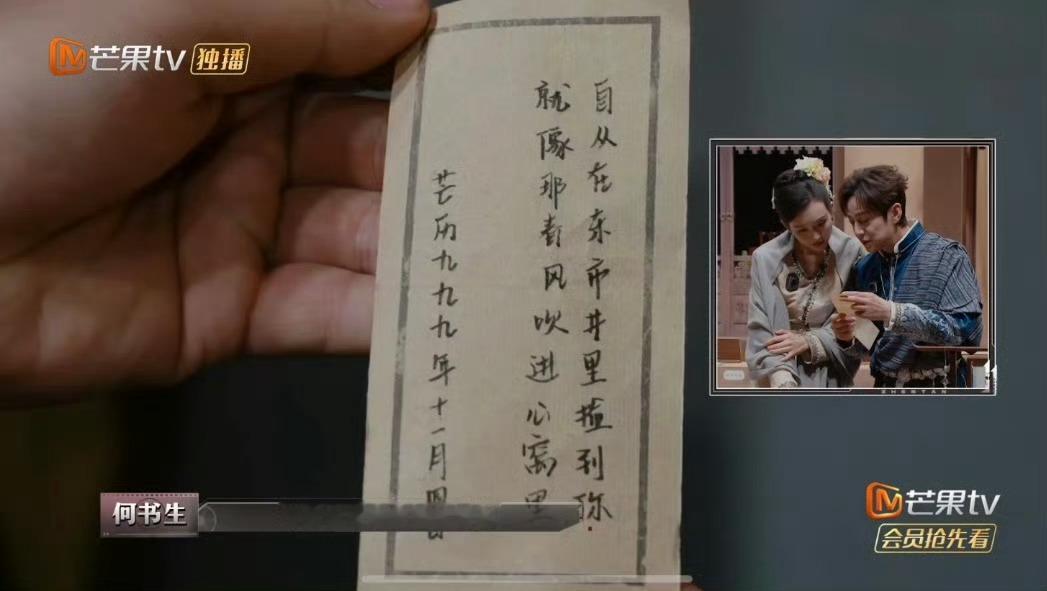 芒果tv 独播
自从在东市井里撞到你
就像那春风吹进心窝里
芒历九九九年十一月四日
何书生
ZHENTAN
芒果tv
会员抢先看